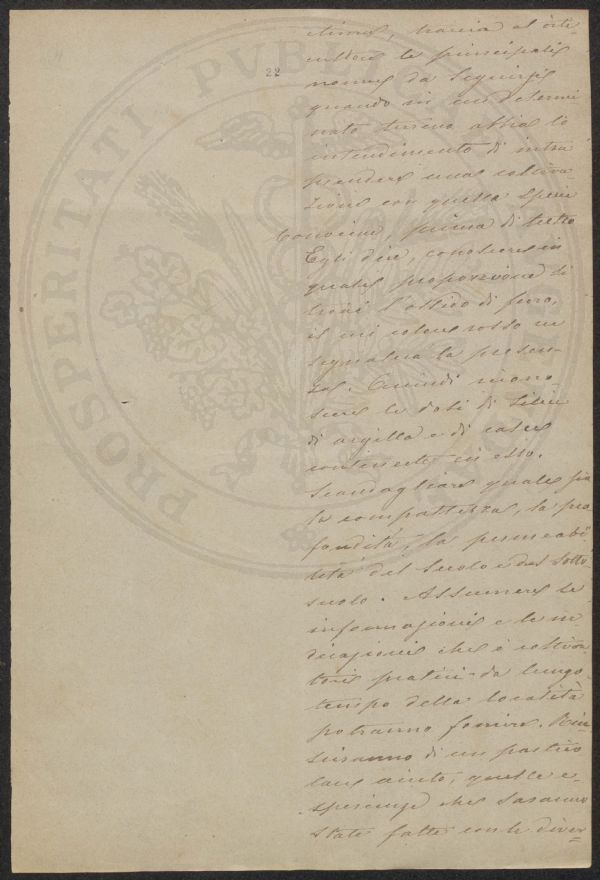 22
time, traccia al viti=
cultore le principali
norme da seguirsi
quando in un determi
nato terreno abbia lo
intendimento di intra
prendere una coltiva
zione con questa specie
Conviene, prima di tutto
Egli dice, conoscere in
quale proporzione si
trovi l'ossido di ferro,
il cui colore rosso ne
segnala la presen=
za. Quindi ricono=
scere le dosi di silice
di argilla e di calce
contenute in esso.
Scandagliare quale sia
la compattezza, la pro
fondità, la permeabi
lità del suolo e del sotto=
suolo. Assumere le
informazioni e le in
dicazioni che i coltiva
tori pratici da lungo
tempo della località
potranno fornire. Riu=
sciranno di un partico
lare aiuto, quelle e=
sperienze che saranno
state fatte con le diver=
PROSPERITATI PVBLICAE